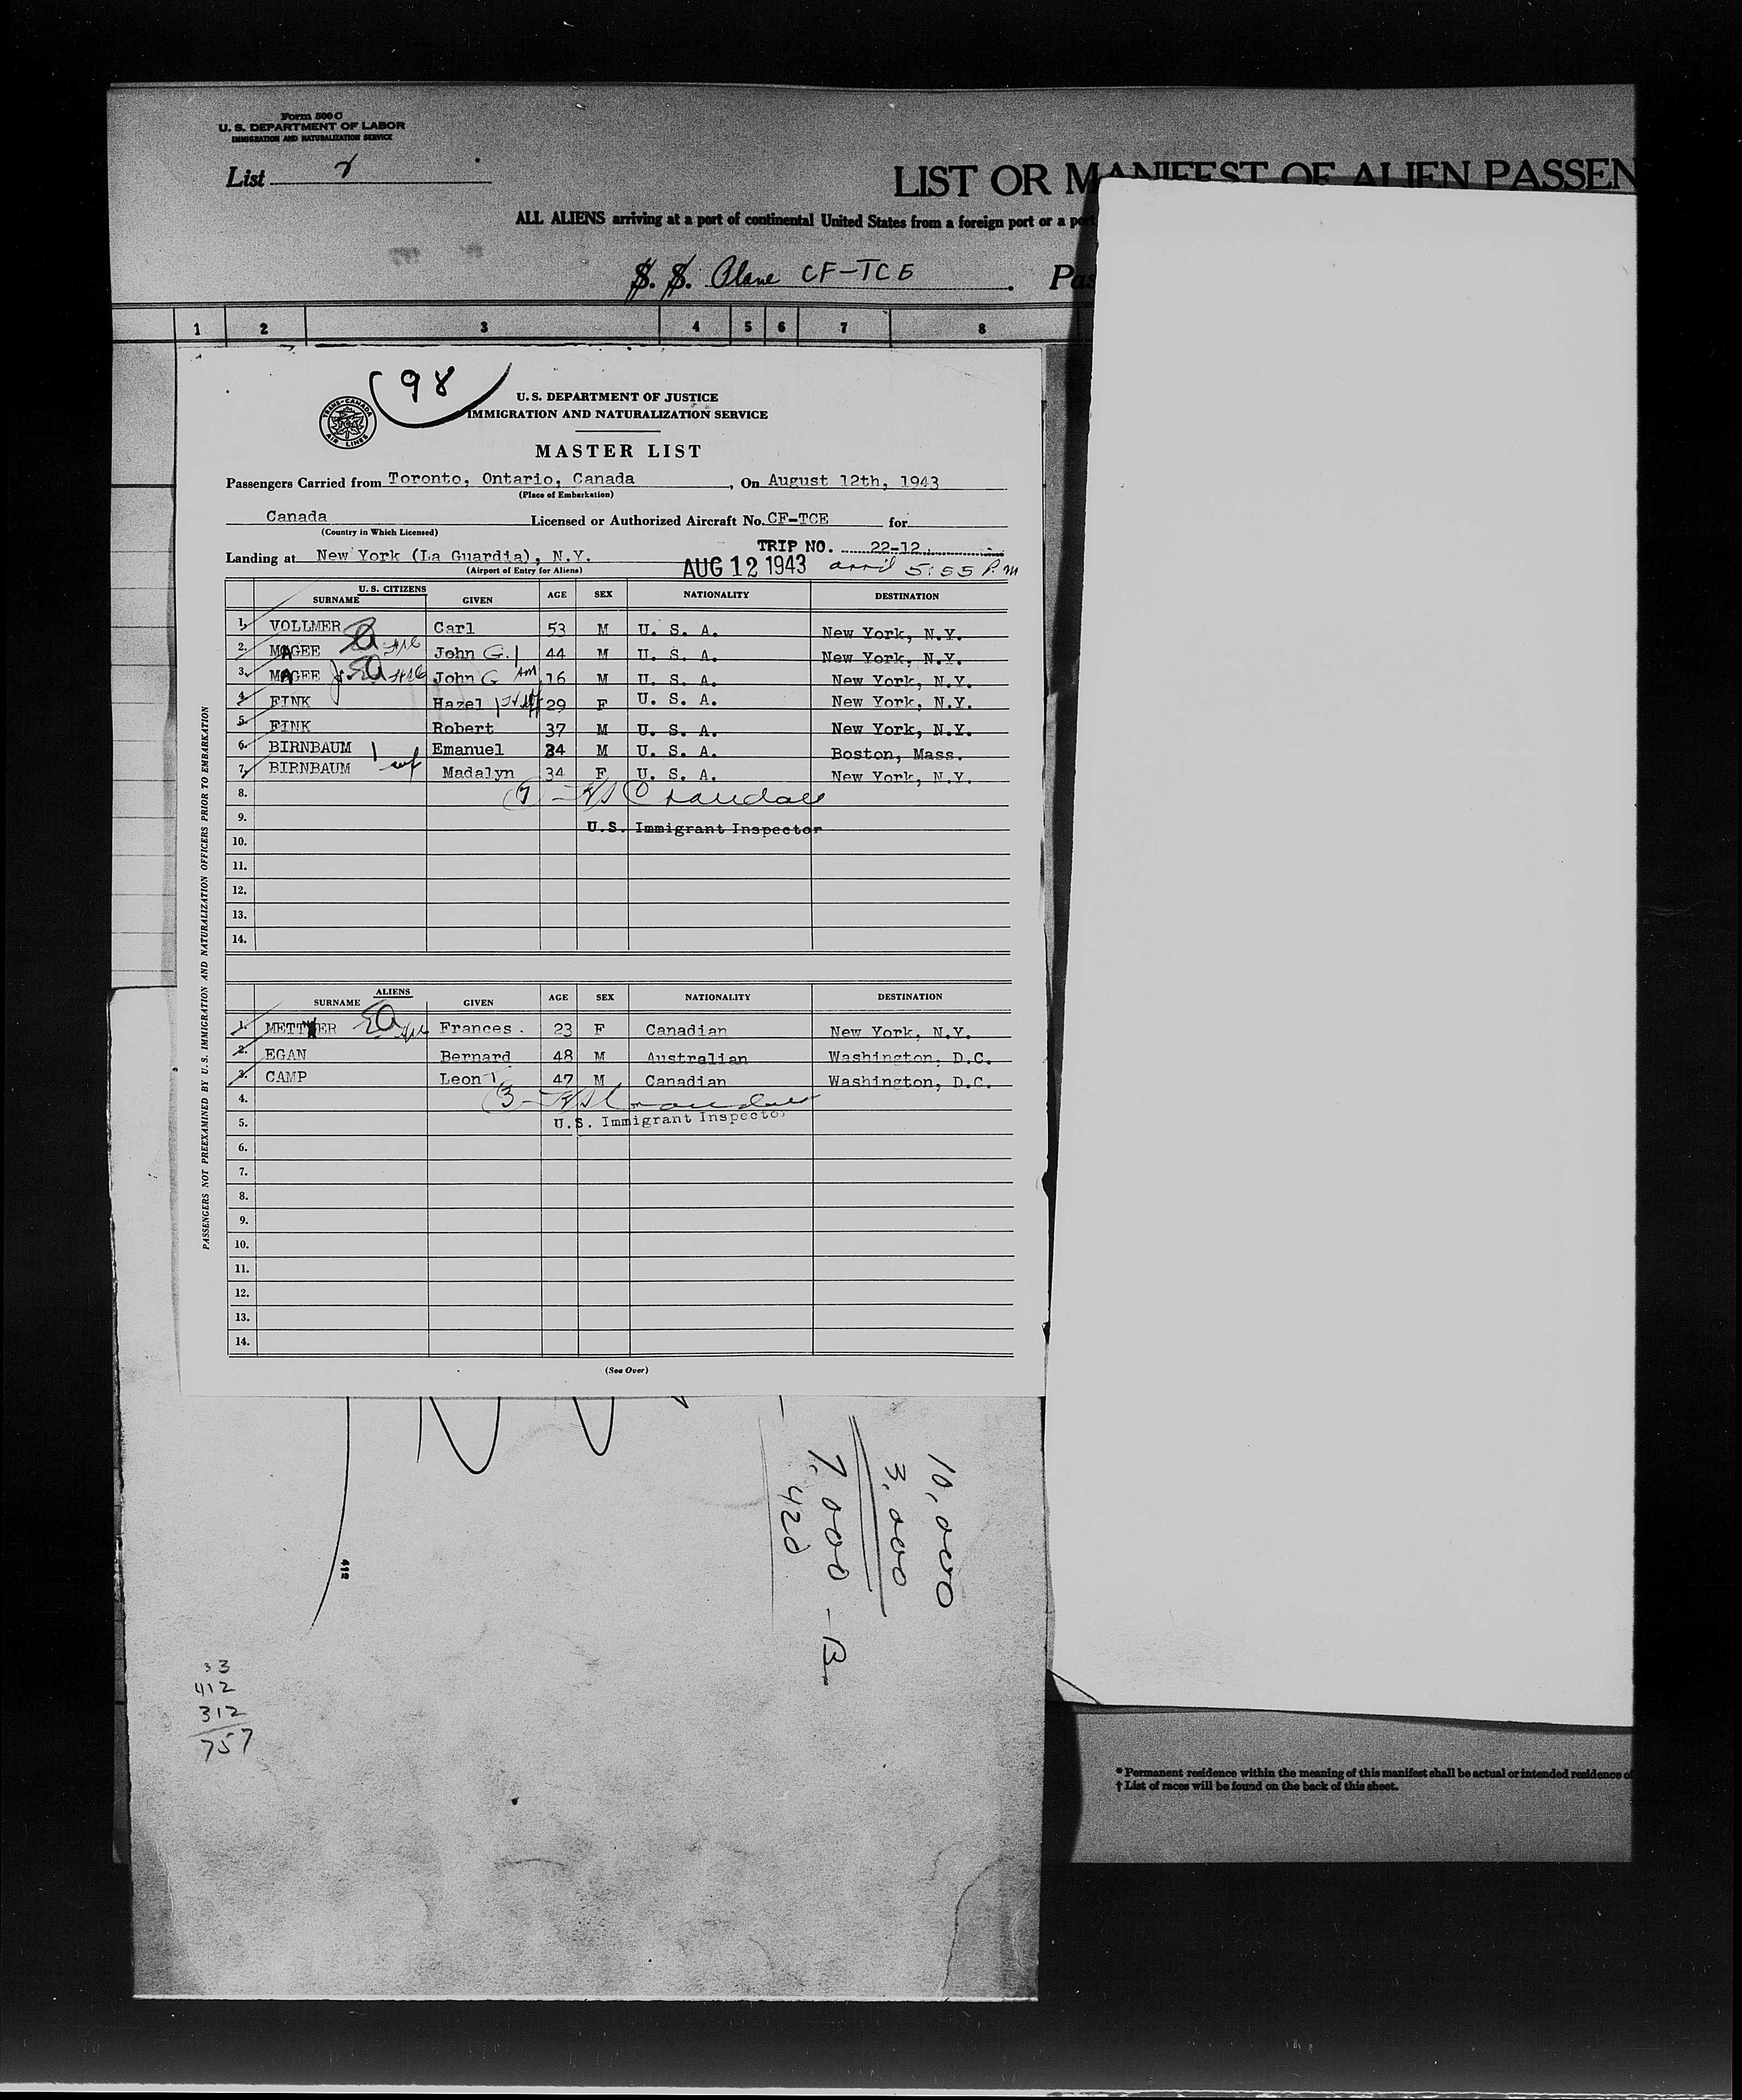 Form 500 C
U. S. DEPARTMENT OF LABOR
IMMIGRATION AND NATURALIZATION SERVICE
List 2
LIST OR MANIFEST OF ALIEN PASSEN
ALL ALIENS arriving at a port of continental United States from a foreign port or a port
S. S. Plane CF-TCE . Pas
1 2 3 4 5 6 7 8
98
TRANS-CANADA AIR LINES
U. S. DEPARTMENT OF JUSTICE
IMMIGRATION AND NATURALIZATION SERVICE
MASTER LIST
Passengers Carried from Toronto, Ontario, Canada , On August 12th, 1943
(Place of Embarkation)
Canada Licensed or Authorized Aircraft No. CF-TCE for
(Country in Which Licensed)
TRIP NO. 22-12
Landing at New York (La Guardia), N.Y. AUG 12 1943 arril 5:55 P.M
(Airport of Entry for Aliens)
U. S. CITIZENS
SURNAME GIVEN AGE SEX NATIONALITY DESTINATION
1. VOLLMER Carl 53 M U. S. A. New York, N.Y.
2. MAGEE John G. 44 M U. S. A. New York, N.Y.
3. MAGEE Jr John G 16 M U. S. A. New York, N.Y.
4. FINK Hazel 29 F U. S. A. New York, N.Y.
5. FINK Robert 37 M U. S. A. New York, N.Y.
6. BIRNBAUM Emanuel 34 M U. S. A. Boston, Mass.
7. BIRNBAUM wf Madalyn 34 F U. S. A. New York, N.Y.
8. 7 - Crandall
9.
U.S. Immigrant Inspector
10.
11.
12.
13.
14.
ALIENS
SURNAME GIVEN AGE SEX NATIONALITY DESTINATION
1. METTLER Frances. 23 F Canadian New York, N.Y.
2. EGAN Bernard 48 M Australian Washington, D.C.
3. CAMP Leon 47 M Canadian Washington, D.C.
4. 3 - Crandall
5. U.S. Immigrant Inspector
6.
7.
8.
9.
10.
11.
12.
13.
14.
(See Over)
PASSENGERS NOT PREEXAMINED BY U. S. IMMIGRATION AND NATURALIZATION OFFICERS PRIOR TO EMBARKATION
10,000
3,000
7,000 - B
420
412
33
412
312
757
* Permanent residence within the meaning of this manifest shall be actual or intended residence of
† List of races will be found on the back of this sheet.